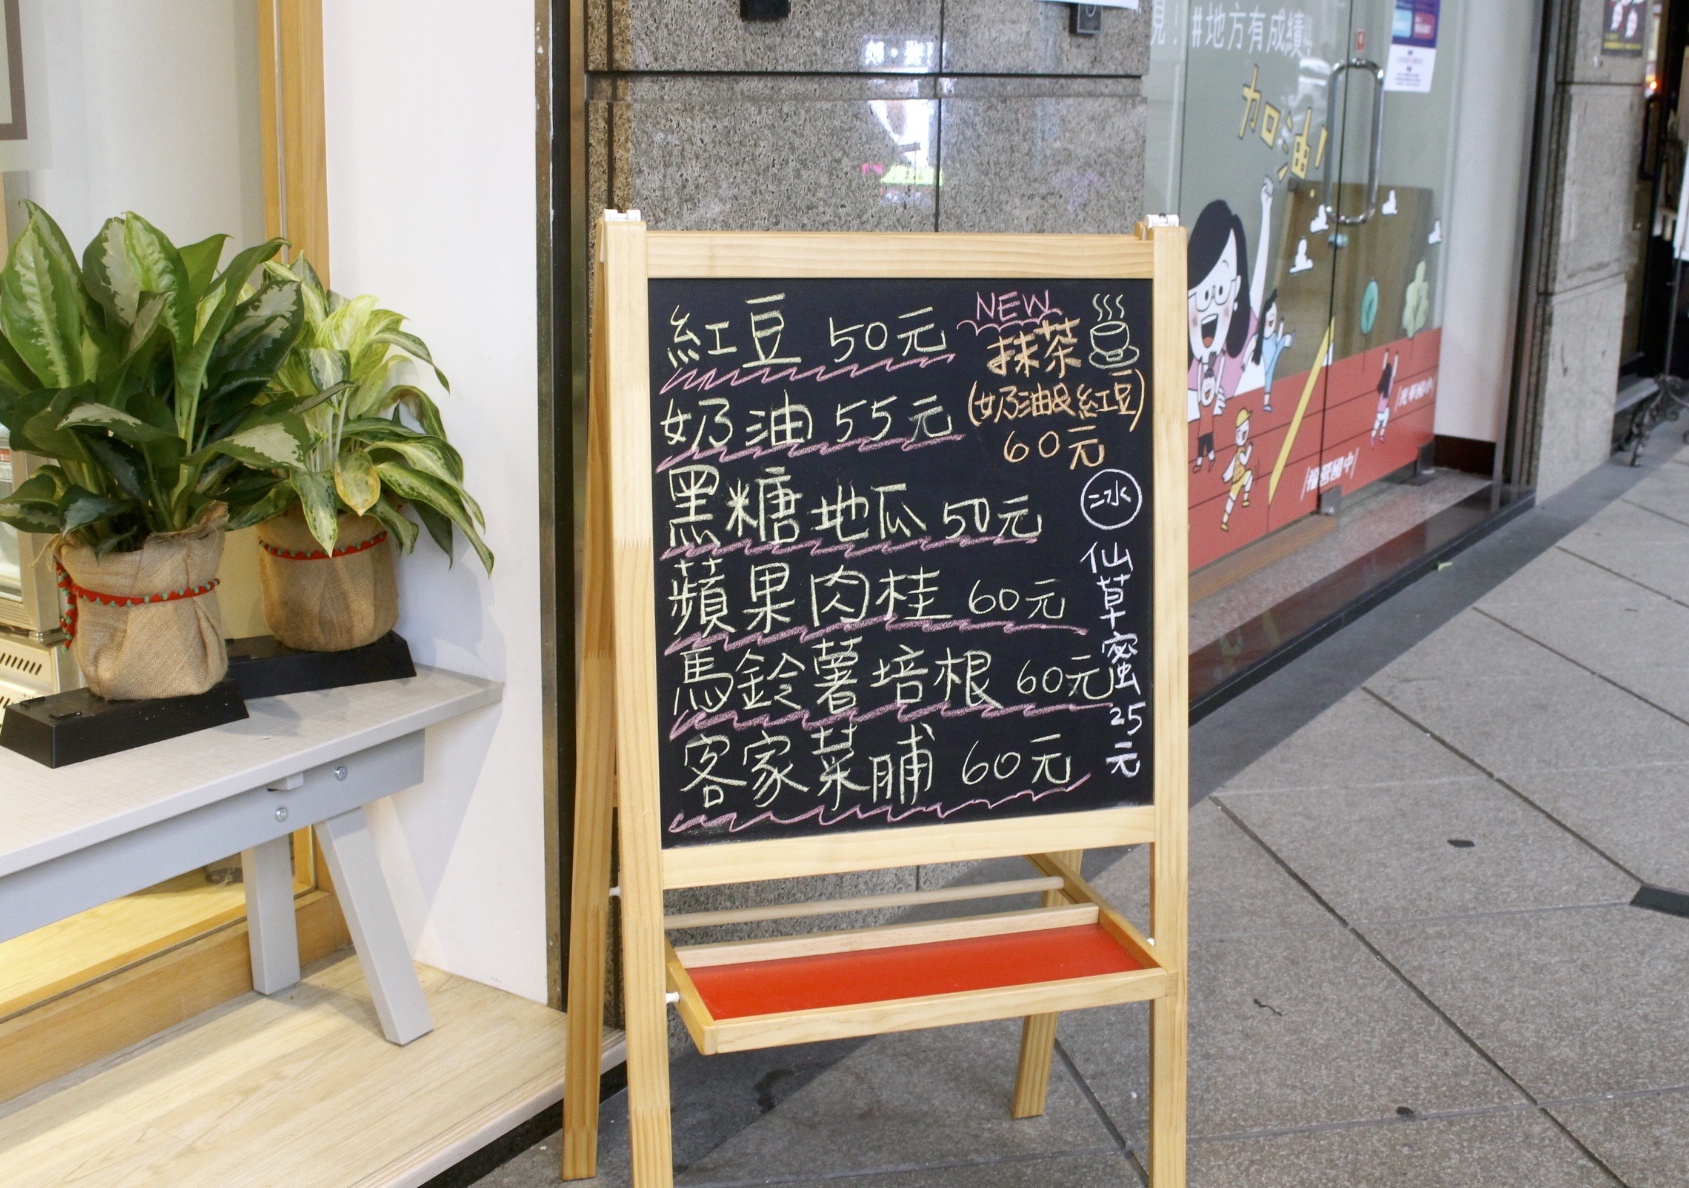 紅豆 50元
奶油 55元
黑糖地瓜 50元
蘋果肉桂 60元
馬鈴薯培根 60元
客家菜脯 60元
NEW
抹茶
(奶油&紅豆)
60元
冰
仙草蜜25元
見!#地方有成績
加油!